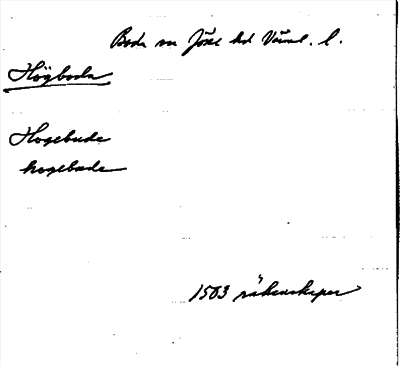 Boda sn Jösse hd Värml. l.
Högboda
Hogebude
hogebude
1503 räkenskaper